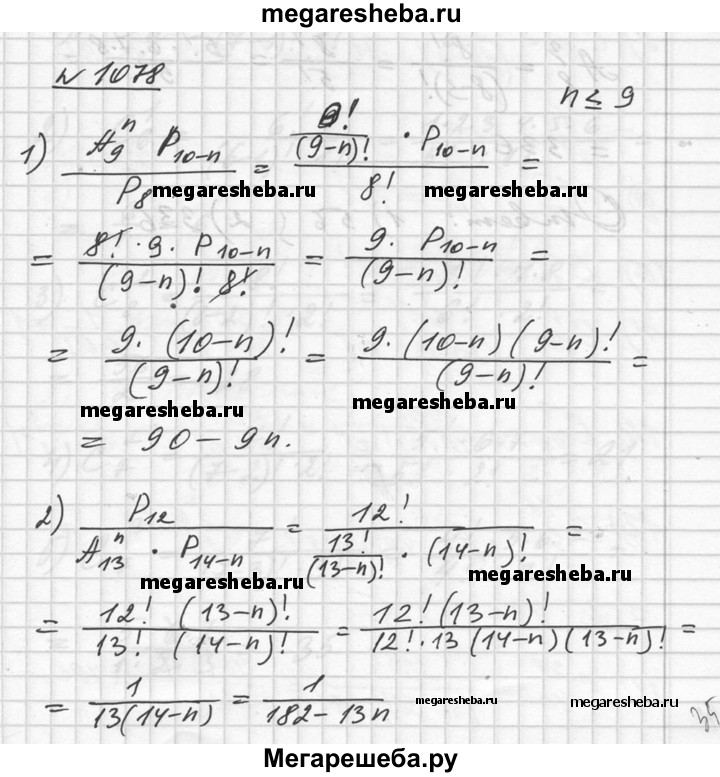 megaresheba.ru
№ 1078
n ≤ 9
1) (A_9^n P_{10-n}) / P_8 = (9!/(9-n)! · P_{10-n}) / 8! =
megaresheba.ru megaresheba.ru
= (8! · 9 · P_{10-n}) / ((9-n)! 8!) = (9 · P_{10-n}) / (9-n)! =
= (9 · (10-n)!) / (9-n)! = (9 · (10-n) (9-n)!) / (9-n)! =
megaresheba.ru megaresheba.ru
= 90 - 9n.
2) P_{12} / (A_{13}^n · P_{14-n}) = 12! / (13!/(13-n)! · (14-n)!) =
megaresheba.ru megaresheba.ru
= (12! (13-n)!) / (13! (14-n)!) = (12! (13-n)!) / (12! · 13 (14-n) (13-n)!) =
= 1 / (13(14-n)) = 1 / (182 - 13n)
megaresheba.ru megaresheba.ru
Мегарешеба.ру